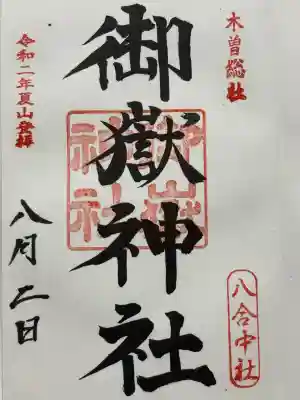 木曽総社
御嶽神社
御嶽神社
八合中社
令和二年夏山登拝
八月二日